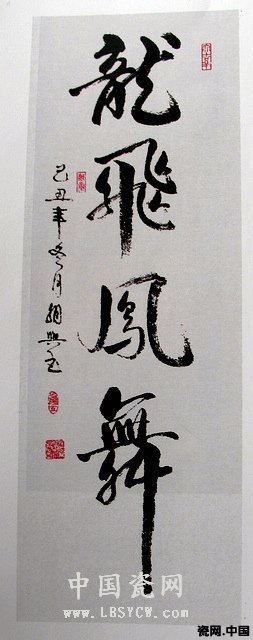 龍飛鳳舞
己丑年冬月
中国瓷网
www.LBSYCW.com
瓷网.中国